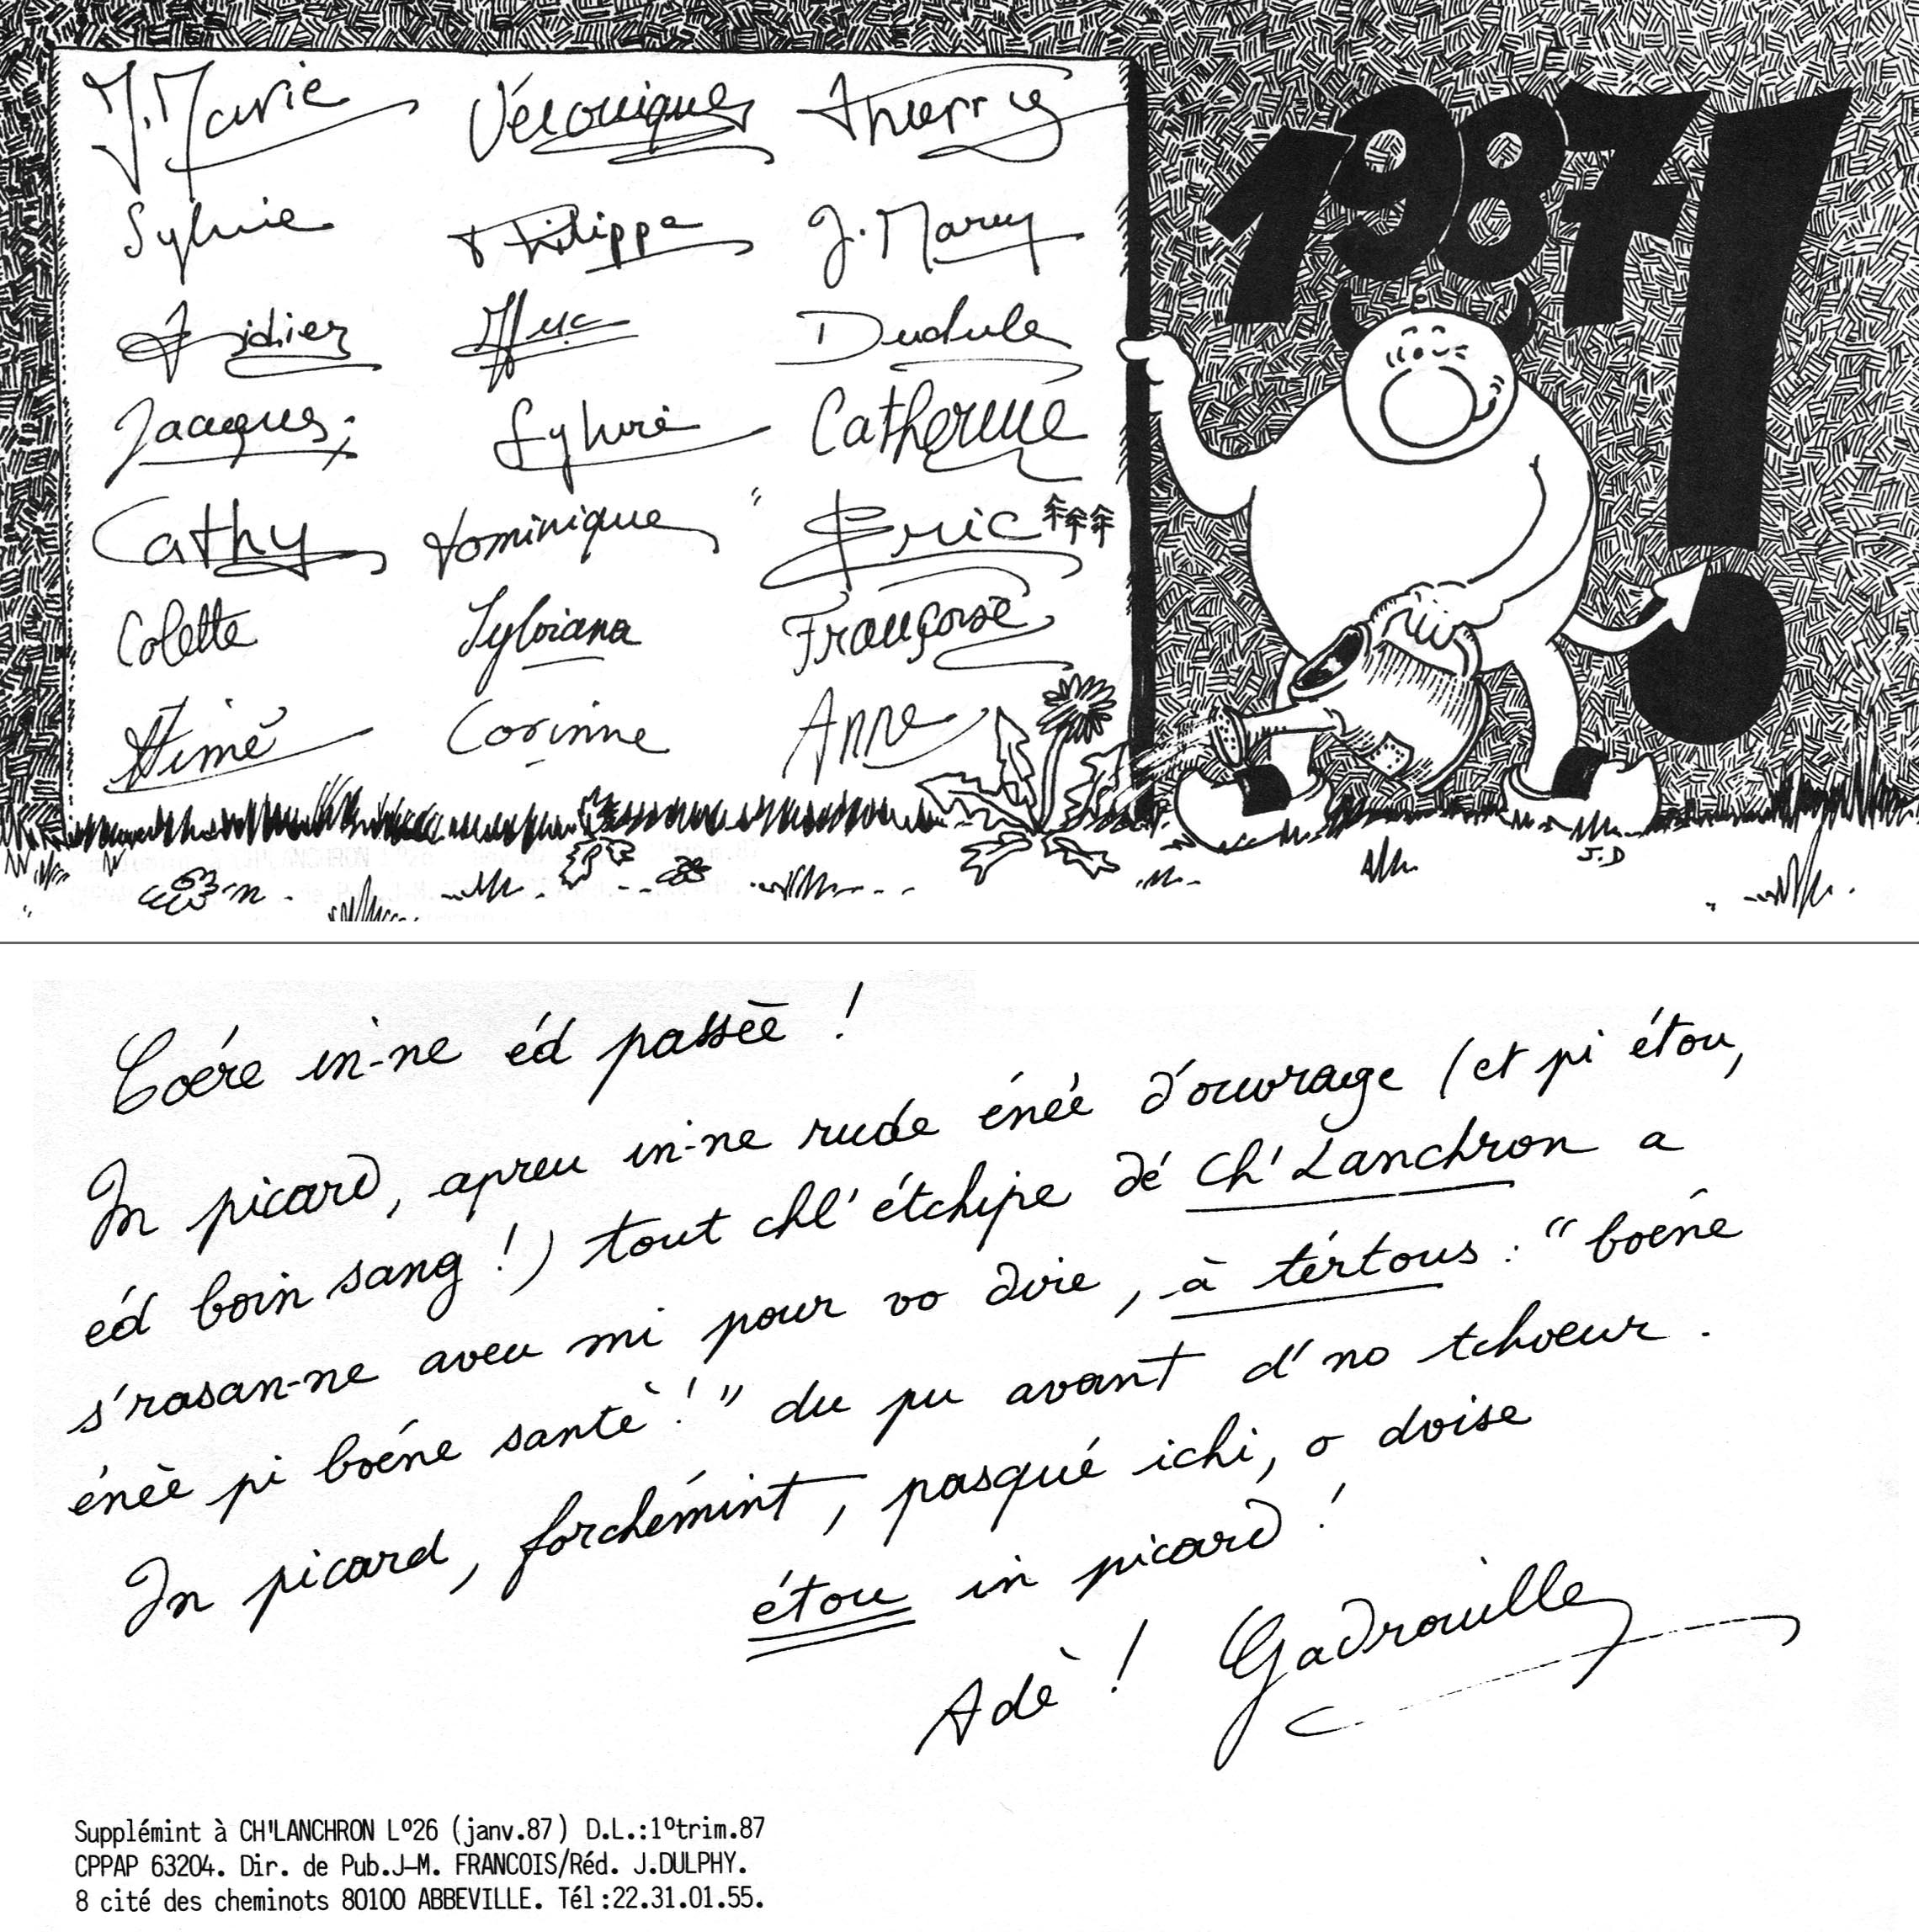 J.Marie Véronique Thierry
Sylvie Philippe J.Mary
Didier Luc Dudule
Jacques Sylvie Catherine
Cathy Dominique Eric
Colette Sylviane Françoise
Aimé Corinne Anne
1987!
J.D
Coére in-ne éd passèe !
In picard, apreu in-ne rude énèe d'ouvrage (et pi étou,
éd boin sang !) tout chl' étchipe dé Ch'Lanchron a
s'rasan-ne aveu mi pour vo dire, à tértous : "boéne
énèe pi boéne santè !" du pu avant d'no tchoeur.
In picard, forchémint, pasqué ichi, o dvise
étou in picard !
Adè ! Gadrouille
Supplémint à CH'LANCHRON L°26 (janv.87) D.L.:1°trim.87
CPPAP 63204. Dir. de Pub.J-M. FRANCOIS/Réd. J.DULPHY.
8 cité des cheminots 80100 ABBEVILLE. Tél:22.31.01.55.